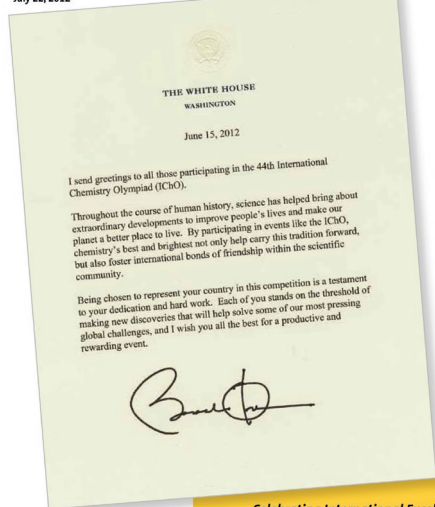 July 22, 2012
THE WHITE HOUSE
WASHINGTON
June 15, 2012
I send greetings to all those participating in the 44th International
Chemistry Olympiad (IChO).
Throughout the course of human history, science has helped bring about
extraordinary developments to improve people's lives and make our
planet a better place to live. By participating in events like the IChO,
chemistry's best and brightest not only help carry this tradition forward,
but also foster international bonds of friendship within the scientific
community.
Being chosen to represent your country in this competition is a testament
to your dedication and hard work. Each of you stands on the threshold of
making new discoveries that will help solve some of our most pressing
global challenges, and I wish you all the best for a productive and
rewarding event.